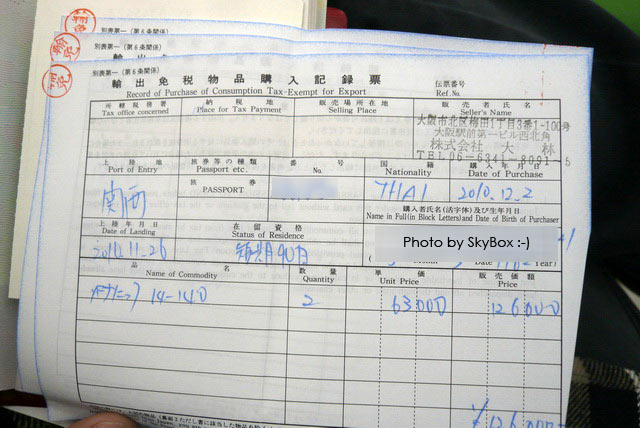 別表第一（第6条関係）
別表第一（第6条関係）
別表第一（第6条関係）
輸出免税物品購入記録票
Record of Purchase of Consumption Tax-Exempt for Export
伝票番号
Ref.No.
所轄税務署
Tax office concerned
納税地
Place for Tax Payment
販売場所在地
Selling Place
販売者氏名
Seller's Name
大阪市北区梅田1丁目3番1-100号
大阪駅前第一ビル西北角
株式会社 大林
TEL06-6341-8091~5
上陸地
Port of Entry
旅券等の種類
Passport etc.
番号
No.
国籍
Nationality
購入年月日
Date of Purchase
関西
旅券
PASSPORT
THAI
2010.12.2
購入者氏名(活字体)及び生年月日
Name in Full(in Block Letters)and Date of Birth of Purchaser
上陸年月日
Date of Landing
在留資格
Status of Residence
Photo by SkyBox :-)
2010.11.26
短期90日
Year)
品名
Name of Commodity
数量
Quantity
単価
Unit Price
販売価額
Price
14-140
2
63000
126000
¥126000